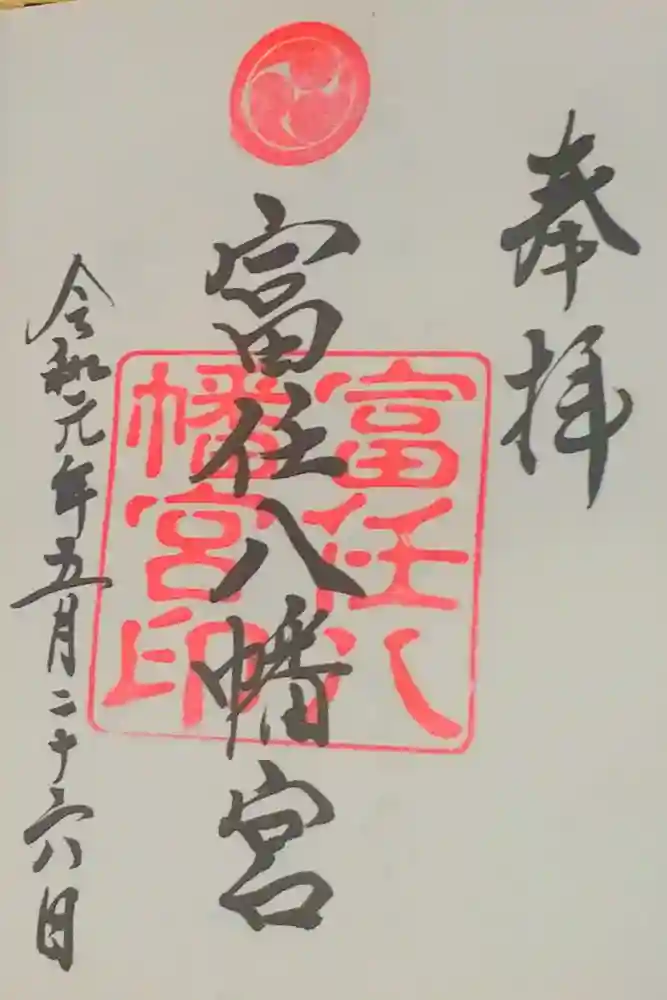 奉拝
富任八幡宮
富任八
幡宮印
令和元年五月二十六日